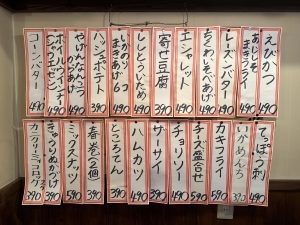 えびかつ 490
あじしそまきフライ 490
レーズンバター 490
ちくわいそべあげ 490
エシャレット 490
寄せ豆腐 390
ししとういため 490
いかのみそまきあげ 490
ハッシュポテト 390
やげんなんこつからあげ 490
ボイルウィンナー 490
コーンバター 490
てっぽう刺 490
390
カキフライ 590
チーズ盛合せ 590
チョリソー 490
サーサイ 390
ハムカツ 490
ところてん 390
春巻(2個) 390
ミックスナッツ 590
きゅうりぬか漬け 390
カニクリーミーコロッケ 390